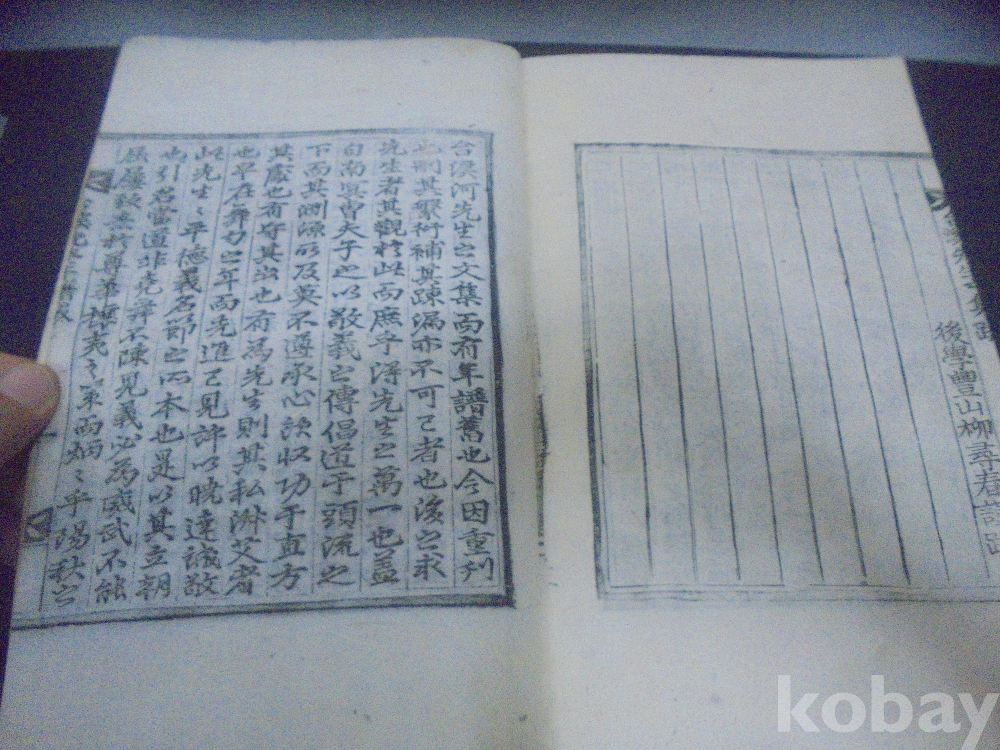 後學豐山柳尋春謹跋
台溪河先生之文集而有年譜舊也今因重刊
其聚術補其踈漏亦不可已者也後之求
先生者其觀於此而庶乎得先生之萬一也盖
自南冥曺夫子之以敬義之傳倡道于頭流之
下而其淵源所及莫不遵承心法收功于直方
其處也有守其出也有爲先生則其私淑艾者
也早在舞勺之年而先進已見許以曉達誠敬
此先生之平德義名節之所本也是以其立朝
也引君當道非堯舜不陳見義必爲威武不能
屈屢
尊華攘夷之策而炳之乎陽秋之
kobay